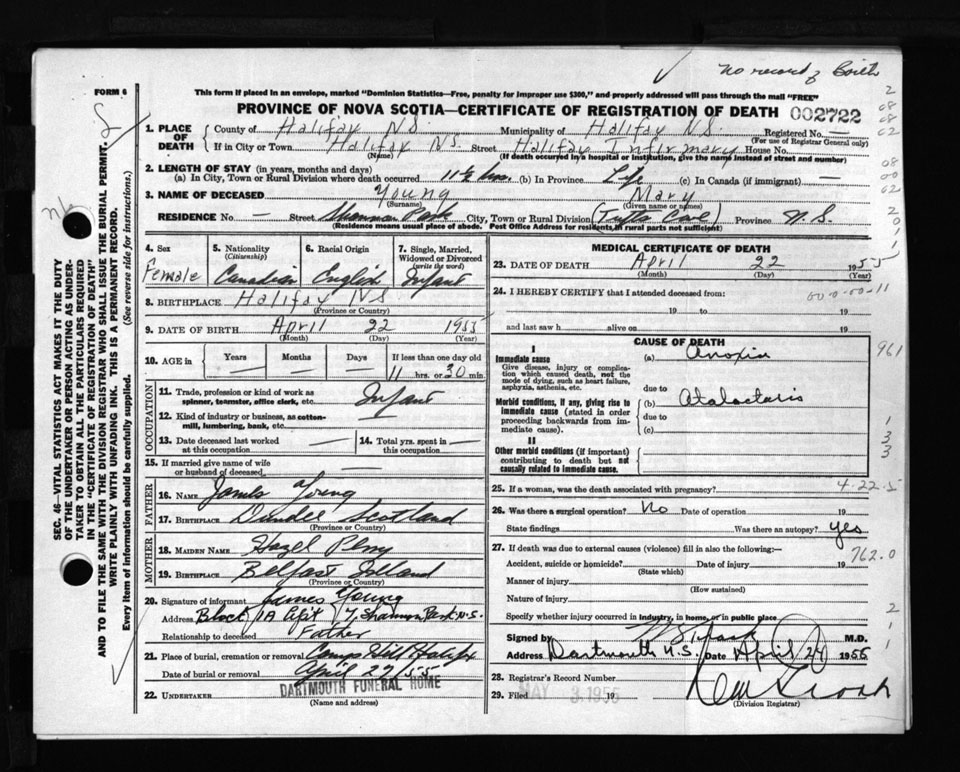 no record of Birth
FORM 6
This form if placed in an envelope, marked "Dominion Statistics—Free, penalty for improper use $300," and properly addressed will pass through the mail "FREE"
PROVINCE OF NOVA SCOTIA—CERTIFICATE OF REGISTRATION OF DEATH 002722
1. PLACE OF DEATH
County of Halifax N.S. Municipality of Halifax N.S. Registered No. —
(For use of Registrar General only)
If in City or Town Halifax N.S. Street Halifax Infirmary House No.
(Name) (If death occurred in a hospital or institution, give the name instead of street and number)
2. LENGTH OF STAY (in years, months and days)
(a) In City, Town or Rural Division where death occurred 11½ hrs. (b) In Province Life (c) In Canada (if immigrant) —
3. NAME OF DECEASED Young Mary
(Surname) (Given name or names)
RESIDENCE No. — Street Shannon Park City, Town or Rural Division (Tufts Cove) Province N.S.
(Residence means usual place of abode. Post Office Address for residents in rural parts not sufficient)
4. Sex Female
5. Nationality (Citizenship) Canadian
6. Racial Origin English
7. Single, Married, Widowed or Divorced (write the word) Infant
8. BIRTHPLACE Halifax NS
(Province or Country)
9. DATE OF BIRTH April 22 1955
(Month) (Day) (Year)
10. AGE in Years — Months — Days — If less than one day old 11 hrs. or 30 min.
OCCUPATION
11. Trade, profession or kind of work as spinner, teamster, office clerk, etc. Infant
12. Kind of industry or business, as cotton-mill, lumbering, bank, etc. —
13. Date deceased last worked at this occupation —
14. Total yrs. spent in this occupation —
15. If married give name of wife or husband of deceased —
FATHER
16. NAME James Young
17. BIRTHPLACE Dundee Scotland
(Province or Country)
MOTHER
18. MAIDEN NAME Hazel
19. BIRTHPLACE Belfast Ireland
(Province or Country)
20. Signature of informant James Young
Address Block 1A Apt 7, Shannon Park N.S.
Relationship to deceased Father
21. Place of burial, cremation or removal Camp Hill Halifax
Date of burial or removal April 27/55
22. UNDERTAKER DARTMOUTH FUNERAL HOME
(Name and address)
MEDICAL CERTIFICATE OF DEATH
23. DATE OF DEATH April 22 1955
(Month) (Day) (Year)
24. I HEREBY CERTIFY that I attended deceased from:
00-0-00-11
19 to 19
and last saw h alive on 19
CAUSE OF DEATH
I
Immediate cause (a) Anoxia
Give disease, injury or complication which caused death, not the mode of dying, such as heart failure, asphyxia, asthenia, etc.
due to
Morbid conditions, if any, giving rise to immediate cause (stated in order proceeding backwards from immediate cause). Atalactasis
due to
(c)
II
Other morbid conditions (if important) contributing to death but not causally related to immediate cause.
961
25. If a woman, was the death associated with pregnancy? 4-22-5
26. Was there a surgical operation? No Date of operation 19
State findings Was there an autopsy? yes
27. If death was due to external causes (violence) fill in also the following:— 762.0
Accident, suicide or homicide? Date of injury 19
(State which)
Manner of injury
(How sustained)
Nature of injury
Specify whether injury occurred in industry, in home, or in public place
Signed by M.D.
Address Dartmouth N.S. Date April 27 1955
28. Registrar's Record Number
29. Filed MAY 3 1955 19
(Division Registrar)
SEC. 46—VITAL STATISTICS ACT MAKES IT THE DUTY
OF THE UNDERTAKER OR PERSON ACTING AS UNDER-
TAKER TO OBTAIN ALL THE PARTICULARS REQUIRED
IN THE "CERTIFICATE OF REGISTRATION OF DEATH"
AND TO FILE THE SAME WITH THE DIVISION REGISTRAR WHO SHALL ISSUE THE BURIAL PERMIT.
WRITE PLAINLY WITH UNFADING INK. THIS IS A PERMANENT RECORD.
Every item of information should be carefully supplied. (See reverse side for instructions).